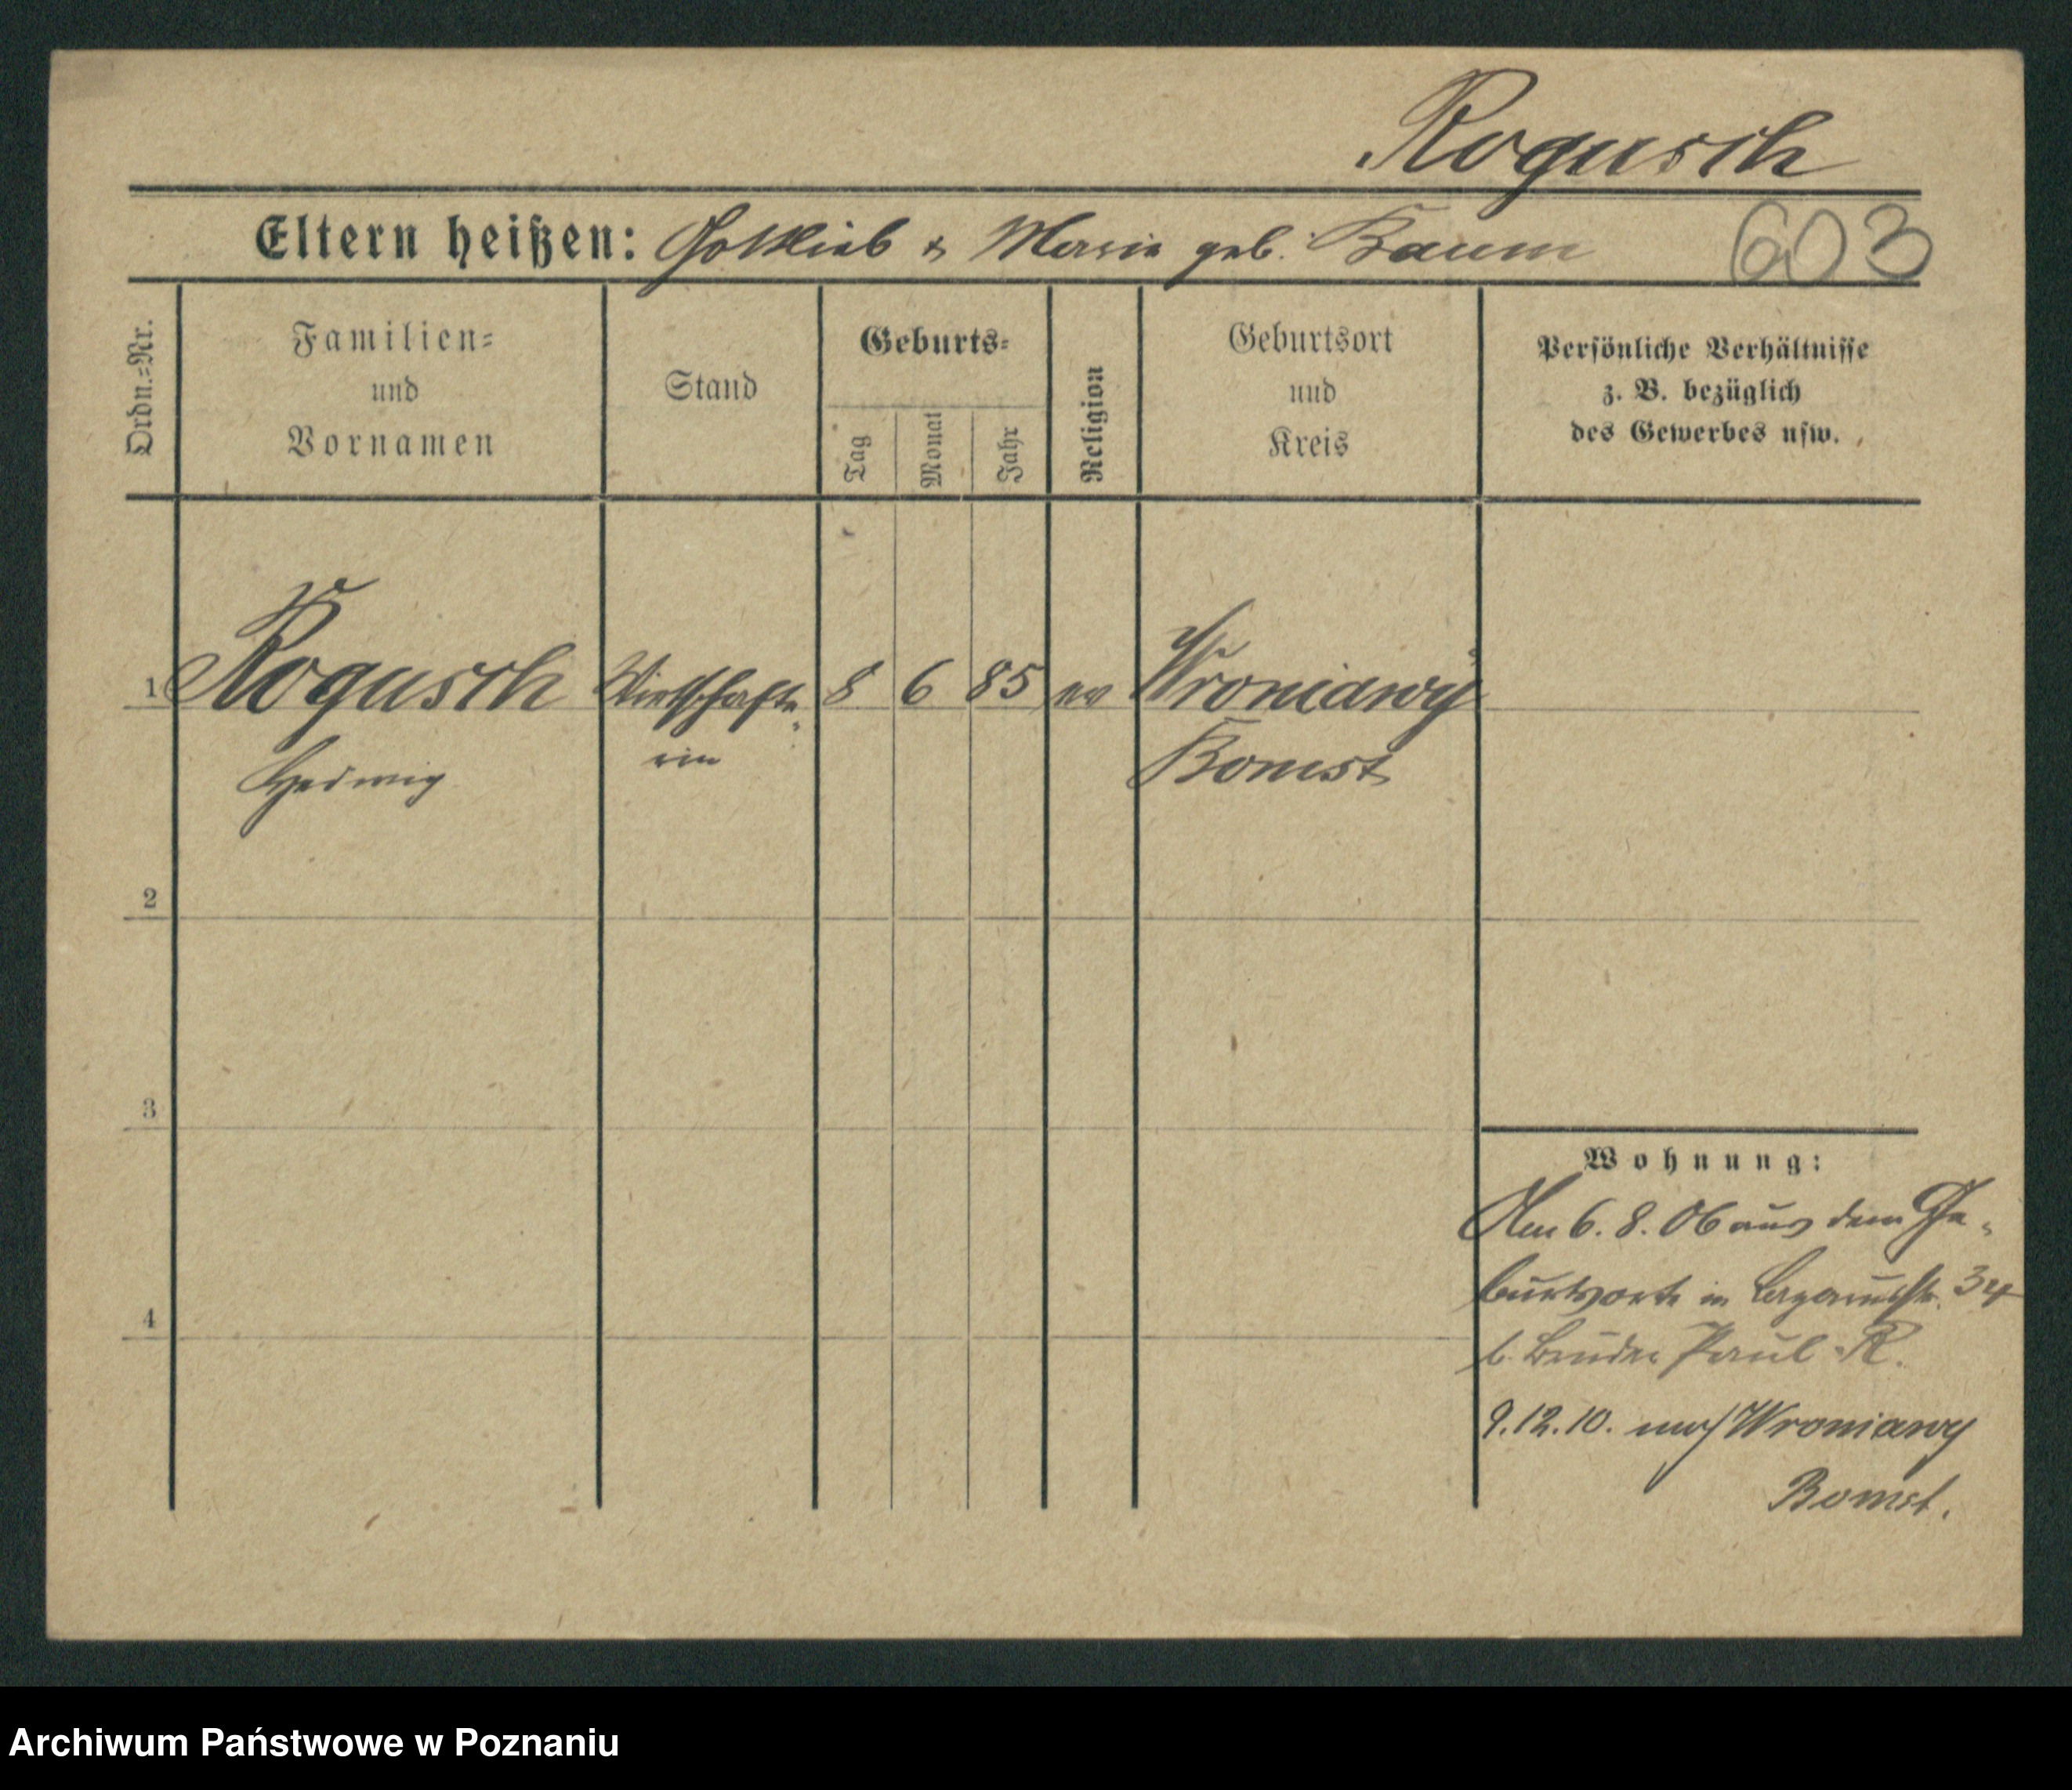 Rogusch
Eltern heißen: Gottlieb & Marie geb. Baum 603
Ordn.=Nr.
Familien=
und
Vornamen
Stand
Geburts=
Tag
Monat
Jahr
Religion
Geburtsort
und
Kreis
Persönliche Verhältnisse
z. B. bezüglich
des Gewerbes usw.
1 Rogusch Wirtschafte= 8 6 85 ev Wroniawy
Hedwig rin Bomst
2
3
4
Wohnung:
Am 6. 8. 06 aus dem Ge=
burtsorte in 34
b. Bruder Paul R.
9.12.10. nach Wroniawy
Bomst.
Archiwum Państwowe w Poznaniu